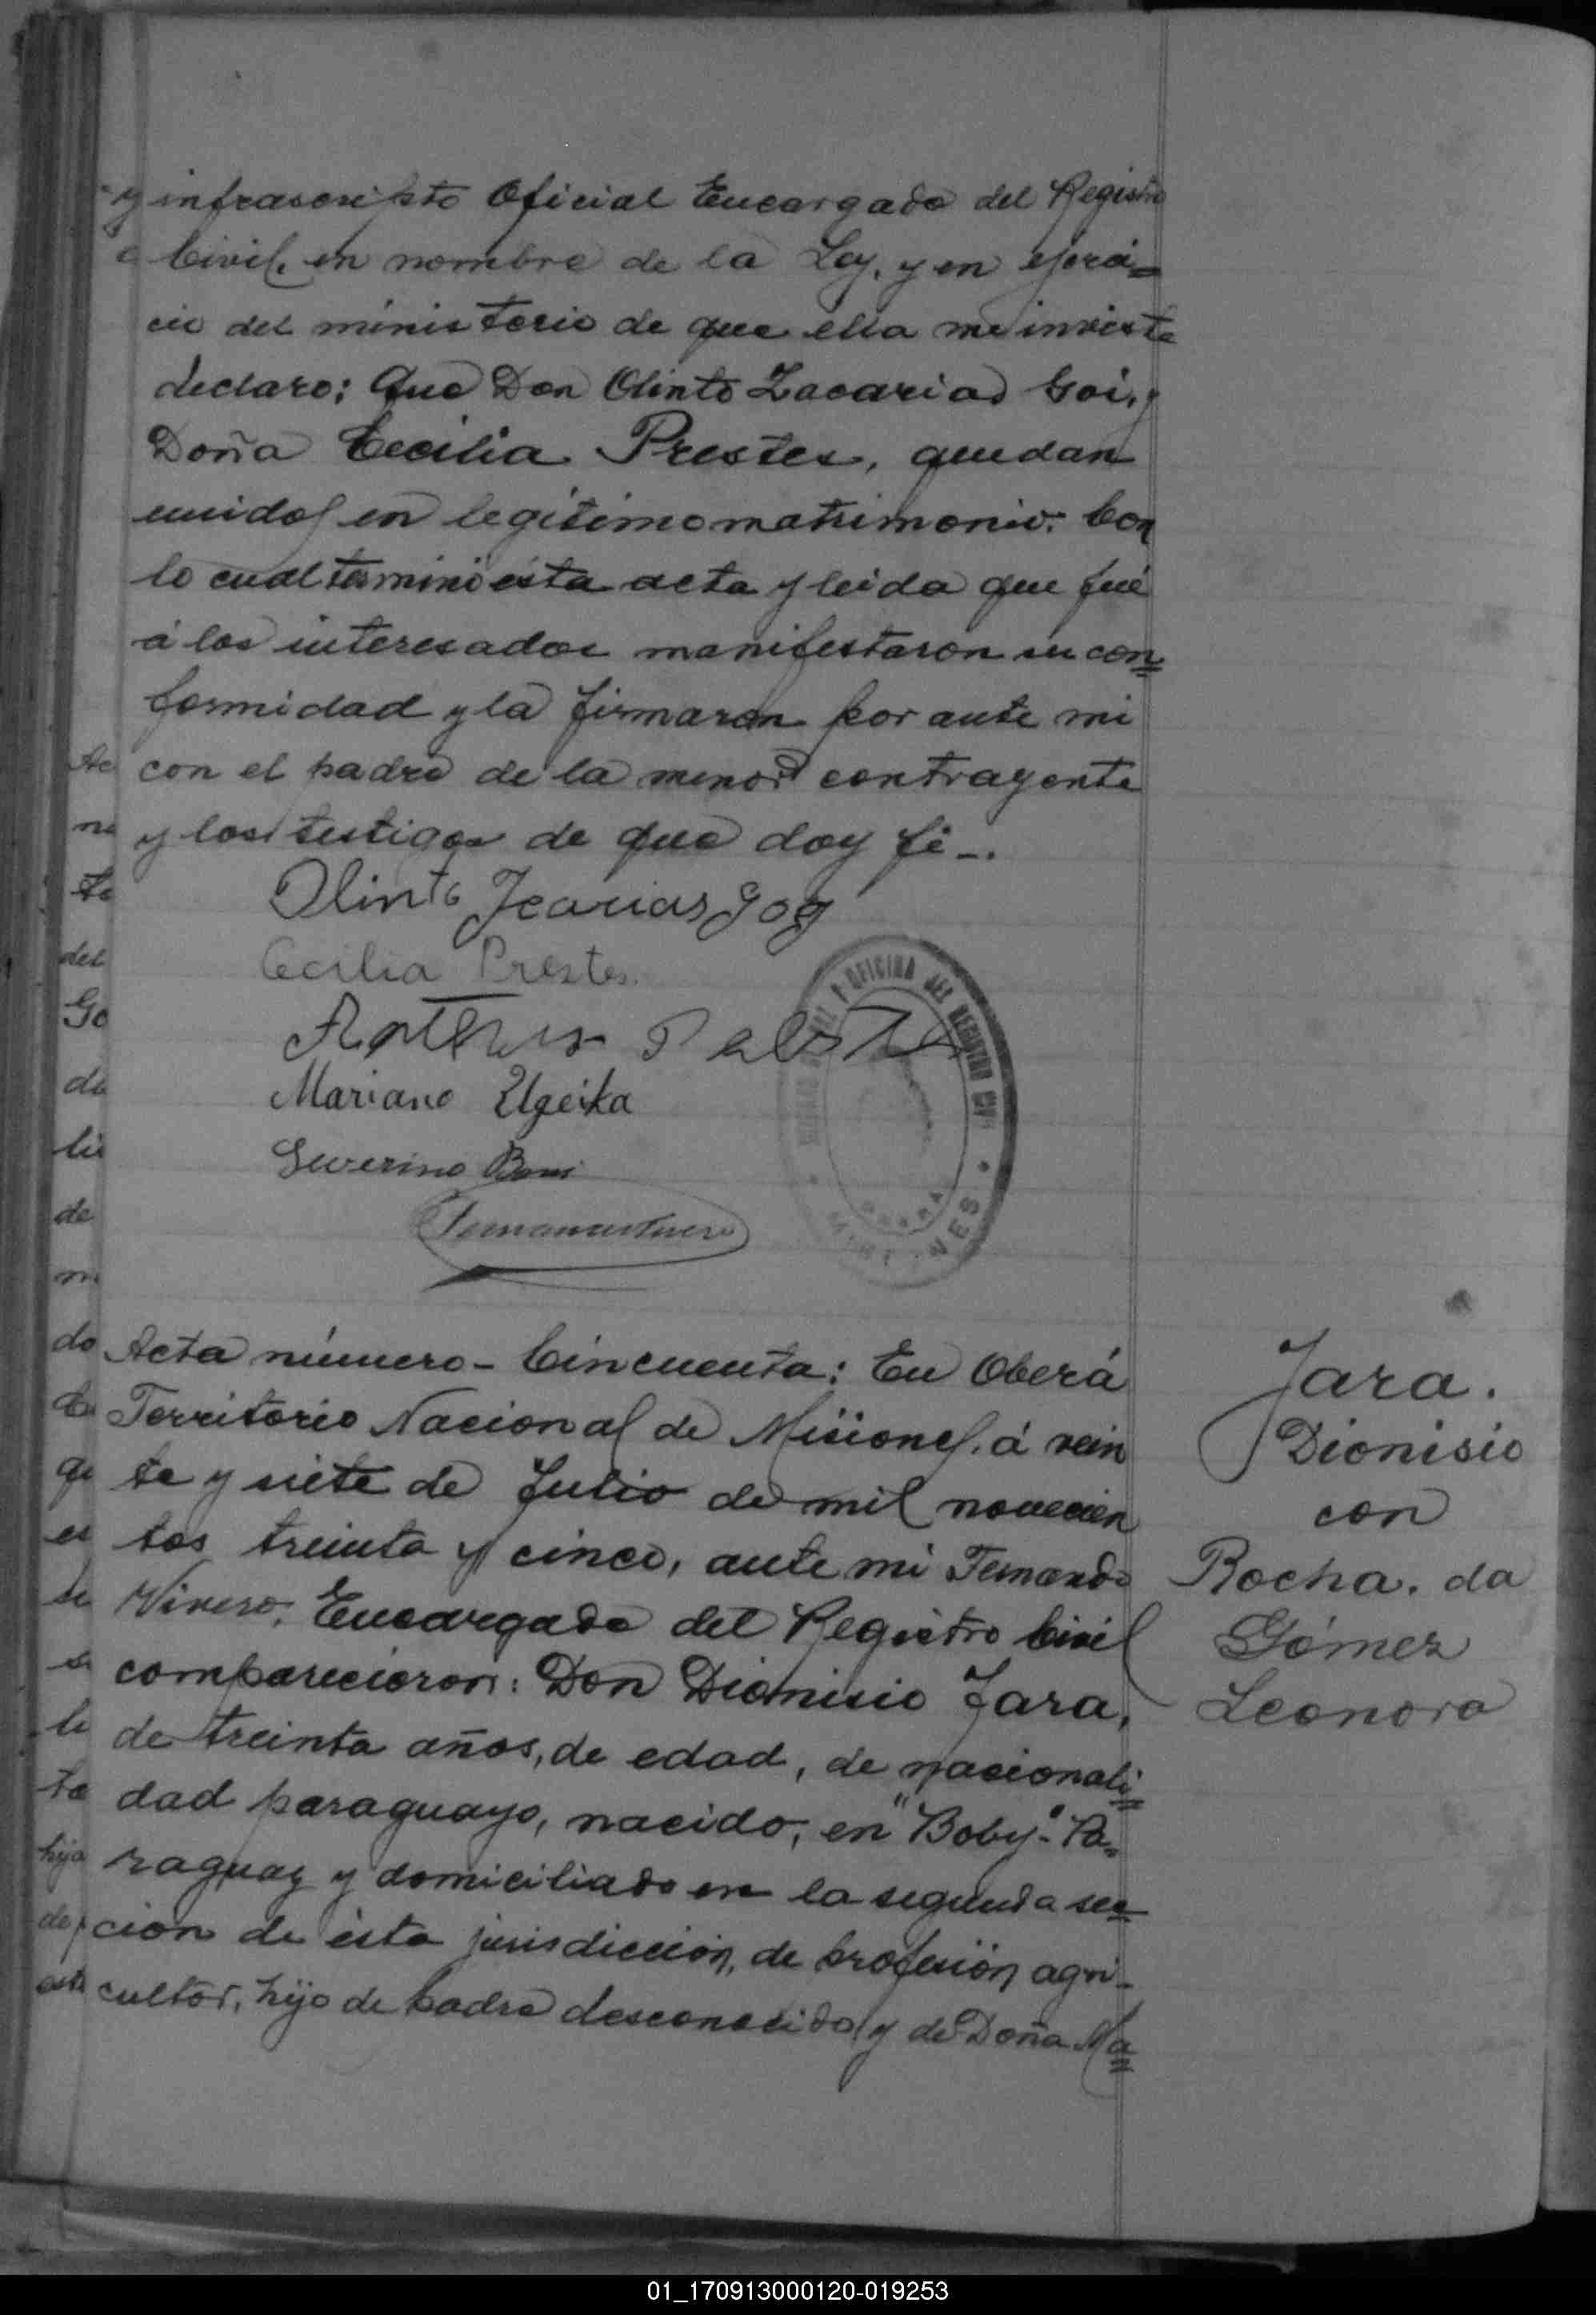 infrascripto Oficial Encargado del Registro
Civil, en nombre de la Ley, y en ejerci=
cio del ministerio de que ella me inviste
declaro: Que Don Olinto Zacarias Goi, y
Doña Cecilia Prestes, quedan
unidos en legítimo matrimonio. Con
lo cual terminó ésta acta y leida que fué
á los interesados manifestaron su con=
formidad y la firmaron por ante mi
con el padre de la menor contrayente
y los testigos de que doy fé -.
Olinto
Cecilia Prestes.
Mariano
Severino
OFICINA DEL REGISTRO CIVIL
Acta número - Cincuenta: En Oberá
Territorio Nacional de Misiones, á vein
te y siete de Julio de mil novecien
tos treinta y cinco, ante mi Fernando
Vivero, Encargado del Registro Civil
comparecieron: Don Dionisio Jara,
de treinta años, de edad, de nacionali=
dad paraguayo, nacido, en "Boby". Pa=
raguay y domiciliado en la segunda sec=
cion de ésta jurisdicción, de profesión agri-
cultor, hijo de padre desconocido y de Doña Ma=
Jara.
Dionisio
con
Rocha. da
Gómez
Leonora
01_170913000120-019253